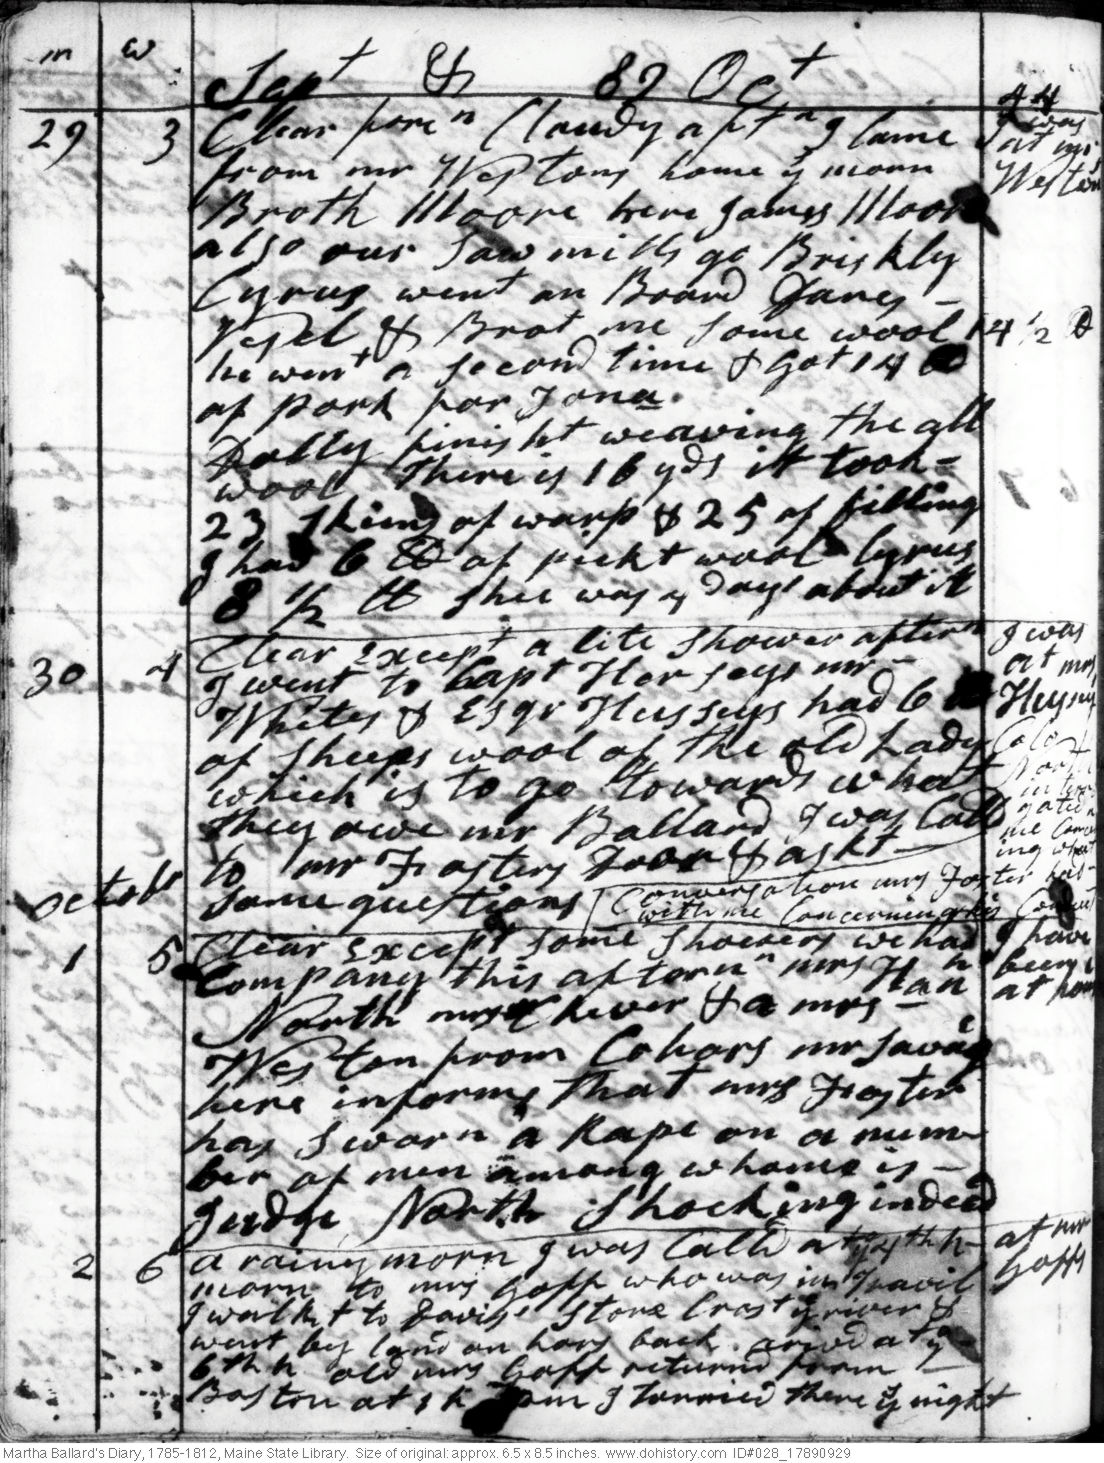 m w
Sept & 89 Oct
44
29 3 Clear foren Cloudy aftn I Came
from mr Westons home ye morn
I was at mr Westens
Broth Moore here James Moor
also our Saw mills go Briskly
Cyrus went on Board
Vesel & Brot me some wool 14 1/2 lb
he went a second time & Got 14 lb
of pork for Jona.
Dolly finisht weaving the all
wool There is 16 yds it took
23 skeins of warp & 25 of filling
I had 6 lb of pickt wool Cyrus
8 1/2 lb Shee was 4 Days about it
30 4 Clear Except a litle shower aftern
I went to Capt Herseys mr
Whites & Esqr Husseys had 6 lb
of sheeps wool of the old Lady
which is to go towards what
they owe mr Ballard I was Calld
to mr Fosters Door & askt
some questions
I was at mrs Husseys
Colo North interogated me Concerning what
Conversation mrs Foster had
with me Concerning his Conduct
October
1 5 Clear Except some showers we had
Company this afternn mrs Han h
North mrs Chever & a mrs
Westen from Cohors mr Savage
here informs that mrs Foster
has sworn a Rape on a num
ber of men among whome is
Judge North Shocking indeed
I have been at home
2 6 a rainy morn I was Calld at ye 4th h
morn to mrs Goff who was in Travil
I walkt to Davis' Store Crost ye river &
went by land on hors back. arivd at ye
6th h old mrs Goff returnd from
Boston at 1 h pm I tarried there ye night
at mr Goffs
Martha Ballard's Diary, 1785-1812, Maine State Library. Size of original: approx. 6.5 x 8.5 inches. www.dohistory.com ID#028_17890929